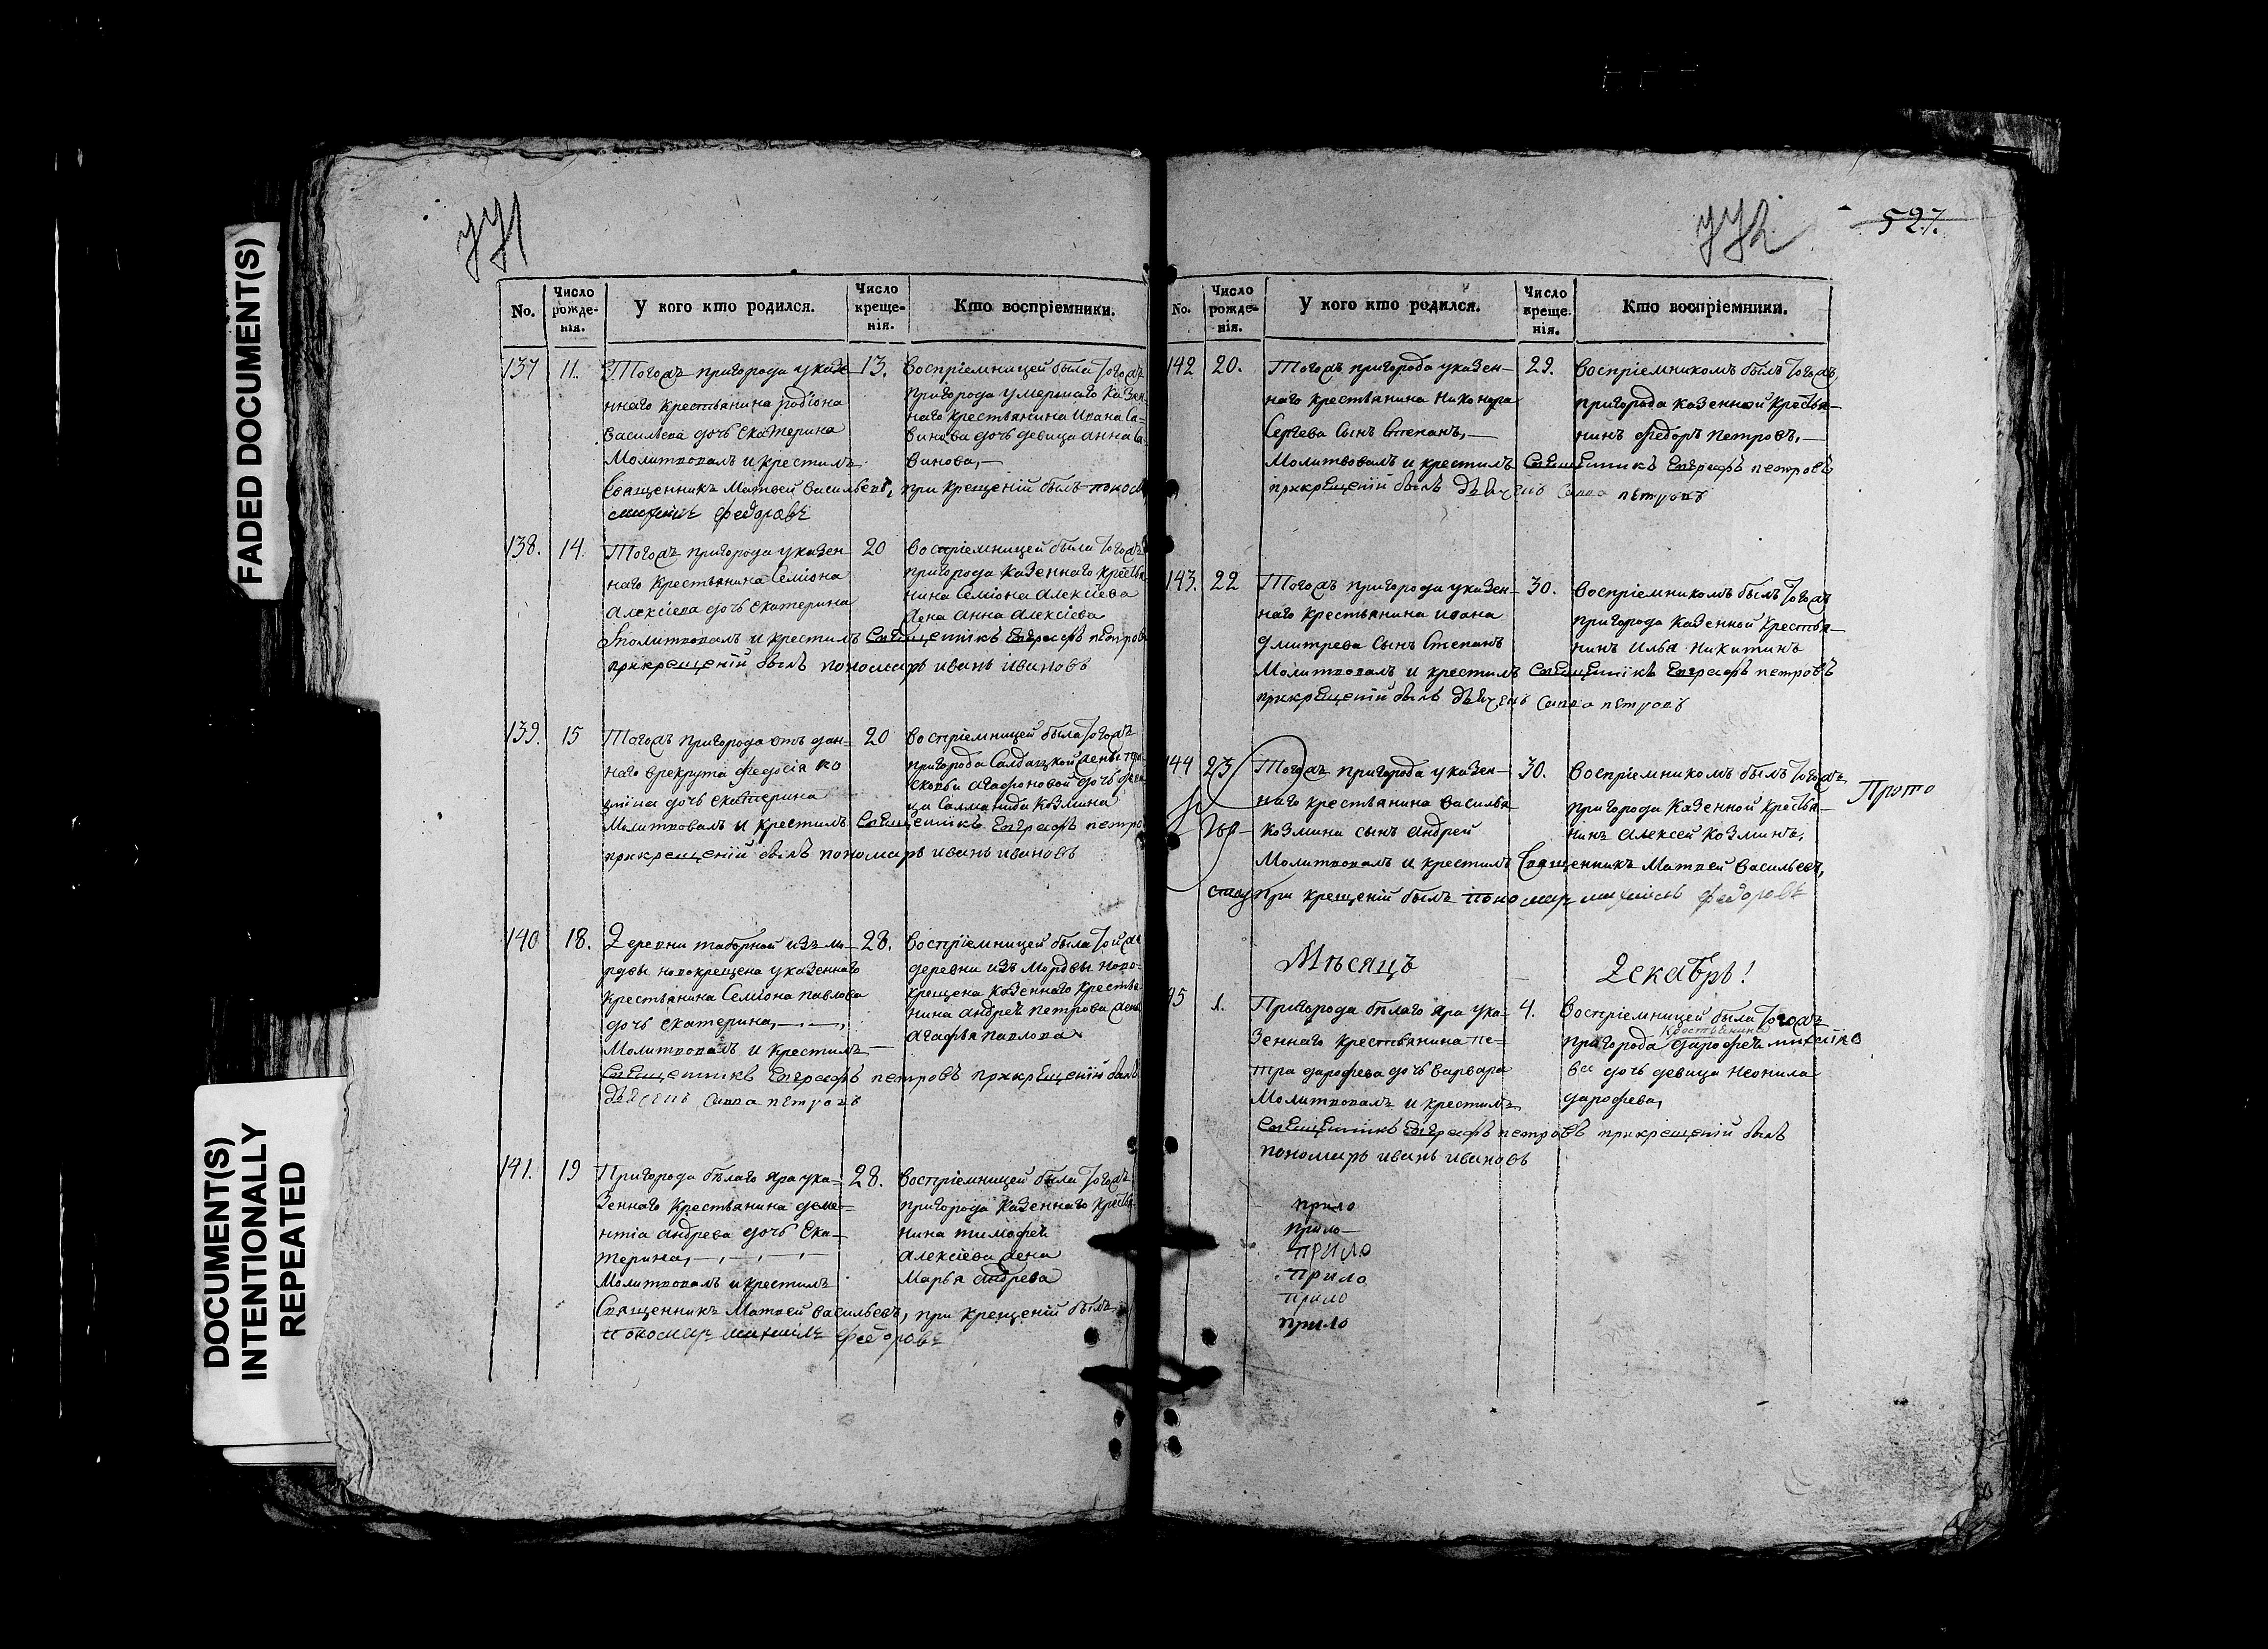 FADED DOCUMENT(S)
DOCUMENT(S)
INTENTIONALLY
REPEATED
No.
Число рожденія.
У кого кто родился.
Число крещенія.
Кто воспріемники.
137
11.
Тогожъ пригорода указе
ннаго крестьянина родіона
Васильева дочь Екатерина
Молитвовалъ и крестилъ
Священникъ Матвей Васильевъ, при крещеній былъ
Федоровъ
13.
Воспріемницей была тогожъ
пригорода умершаго казен
наго крестьянина Ивана Са-
винова дочь девица анна Са-
винова,
138.
14.
Тогожъ пригорода указен-
наго крестьянина Семіона
Алексіева дочь Екатерина
Молитвовалъ и крестилъ Священникъ Евграфъ петровъ
при крещеній былъ пономарь иванъ ивановъ
20
Воспріемницей была тогожъ
пригорода казеннаго крестья
нина Семіона Алексіева
жена Анна Алексіева
139.
15
Тогожъ пригорода отъ дан-
наго врекруты федосія ко
зміна дочь Екатерина
Молитвовалъ и крестилъ Священникъ Евграфъ петро
при крещеній былъ пономарь иванъ ивановъ
20
Воспріемницей была тогожъ
пригорода Салдацкой жены пра
сковьи агафоновой дочь деви
ца Саламанида Козмина
140
18.
Деревни таборной изъ мо-
рдвы новокрещена указеннаго
крестьянина Семіона павлова
дочь Екатерина,
Молитвовалъ и крестилъ
Священникъ Евграфъ петровъ при крещеній былъ
дьячекъ Савва петровъ
28.
Воспріемницей была той же
деревни изъ Мордвы ново-
крещена казеннаго крестья
нина андрей петрова жена
агафья павлова
141.
19
Пригорода белаго яра ука-
зеннаго крестьянина деме-
нтіа андрева дочь Ека-
терина,
Молитвовалъ и крестилъ
Священникъ Матвей Васильевъ, при крещеній былъ
пономарь михаилъ федоровъ
28.
Воспріемницей была тогожъ
пригорода казеннаго крестья
нина тимофей
алексіева жена
Марья андрева
527.
No.
Число рожденія.
У кого кто родился.
Число крещенія.
Кто воспріемники.
142
20.
Тогожъ пригорода указен-
наго крестьянина Никонора
Сергева Сынъ Степанъ,
Молитвовалъ и крестилъ Священникъ Евграфъ петровъ
при крещеній былъ дьячекъ Савва петровъ
29.
Воспріемникомъ былъ тогожъ
пригорода казенной крестья-
нинъ федоръ петровъ,
143.
22
Тогожъ пригорода указен-
наго крестьянина ивана
дмитрева Сынъ Степанъ
Молитвовалъ и крестилъ Священникъ Евграфъ петровъ
при крещеній былъ дьячекъ Савва петровъ
30.
Воспріемникомъ былъ тогожъ
пригорода казенной крестья-
нинъ илья никитинъ
144
23
Тогожъ пригорода указен-
наго крестьянина василья
козмина сынъ андрей
Молитвовалъ и крестилъ Священникъ Матвей Васильевъ,
при крещеній былъ пономарь михаилъ федоровъ
30.
Воспріемникомъ былъ тогожъ
пригорода казенной крестья-
нинъ алексей козминъ,
Прото
Месяцъ Декабрь!
45
1.
Пригорода белаго яра ука-
зеннаго крестьянина пе-
тра дарофева дочь варвара
Молитвовалъ и крестилъ
Священникъ Евграфъ петровъ при крещеній былъ
пономарь иванъ ивановъ
4.
Воспріемницей была тогожъ
крестьянина
пригорода дарофей михаійло
ва дочь девица Неонила
дарофева,
прило
прило
прило
прило
прило
прило